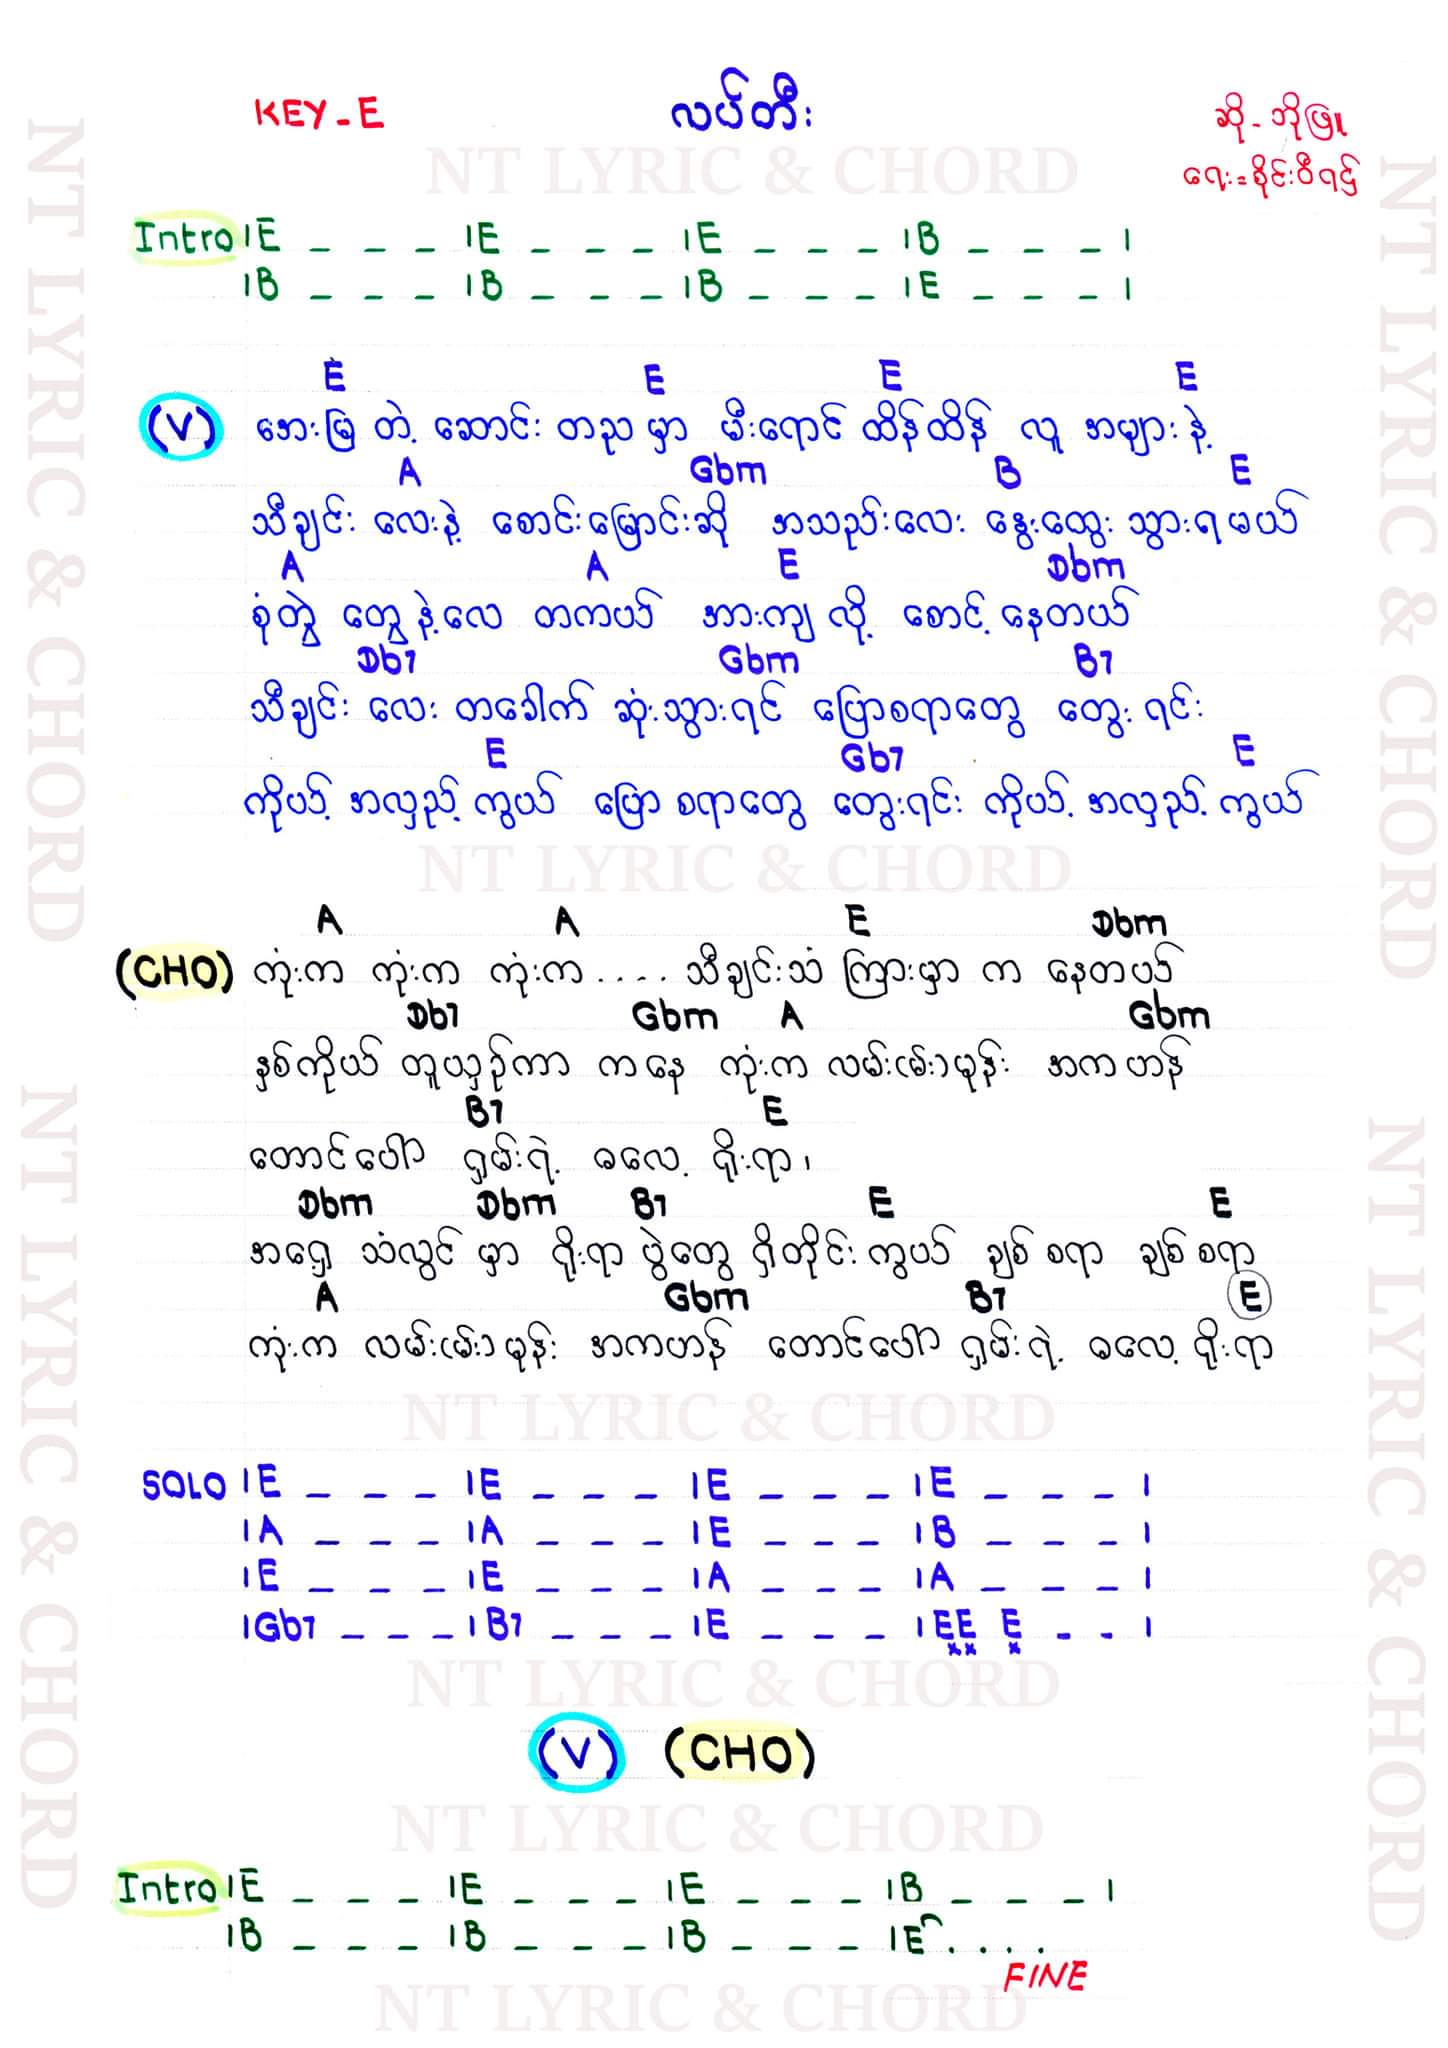 KEY - E
လပ်တီး
ဆို - ဘိုဖြူ
ရေး = စိုင်းဝီရဌ်
NT LYRIC & CHORD
Intro |E _ _ _ |E _ _ _ |E _ _ _ |B _ _ _ |
|B _ _ _ |B _ _ _ |B _ _ _ |E _ _ _ |
E E E E
(V) အေးမြ တဲ့ ဆောင်း တညမှာ မီးရောင် ထိန်ထိန် လူ အများ နဲ့
A Gbm B E
သီချင်း လေးနဲ့ စောင်းမြောင်းဆို အသည်းလေး နွေးထွေး သွားရမယ်
A A E Dbm
စုံတွဲ တွေနဲ့လေ တကယ် အားကျ လို့ စောင့် နေတယ်
Db7 Gbm B7
သီချင်း လေး တခေါက် ဆုံးသွားရင် ပြောစရာတွေ တွေး ရင်း
E Gb7 E
ကိုယ့် အလှည့် ကွယ် ပြော စရာတွေ တွေးရင်း ကိုယ့် အလှည့် ကွယ်
NT LYRIC & CHORD
A A E Dbm
(CHO) ကုံးက ကုံးက ကုံးက .... သီချင်းသံ ကြားမှာ က နေတယ်
Db7 Gbm A Gbm
နှစ်ကိုယ် တူယှဉ်ကာ ကနေ ကုံးက လမ်း(မ်း)မုန်း အကဟန်
B7 E
တောင်ပေါ် ရှမ်းရဲ့ ဓလေ့ ရိုးရာ၊
Dbm Dbm B7 E E
အရှေ့ သံလွင် မှာ ရိုးရာ ပွဲတွေ ရှိတိုင်း ကွယ် ချစ် စရာ ချစ် စရာ
A Gbm B7 E
ကုံးက လမ်း(မ်း)မုန်း အကဟန် တောင်ပေါ် ရှမ်းရဲ့ ဓလေ့ ရိုးရာ
NT LYRIC & CHORD
SOLO |E _ _ _ |E _ _ _ |E _ _ _ |E _ _ _ |
|A _ _ _ |A _ _ _ |E _ _ _ |B _ _ _ |
|E _ _ _ |E _ _ _ |A _ _ _ |A _ _ _ |
|Gb7 _ _ _ |B7 _ _ _ |E _ _ _ |EE E _ _ |
x x x
NT LYRIC & CHORD
(V) (CHO)
NT LYRIC & CHORD
Intro |E _ _ _ |E _ _ _ |E _ _ _ |B _ _ _ |
|B _ _ _ |B _ _ _ |B _ _ _ |E . . . .
FINE
NT LYRIC & CHORD
NT LYRIC & CHORD
NT LYRIC & CHORD
NT LYRIC & CHORD
NT LYRIC & CHORD